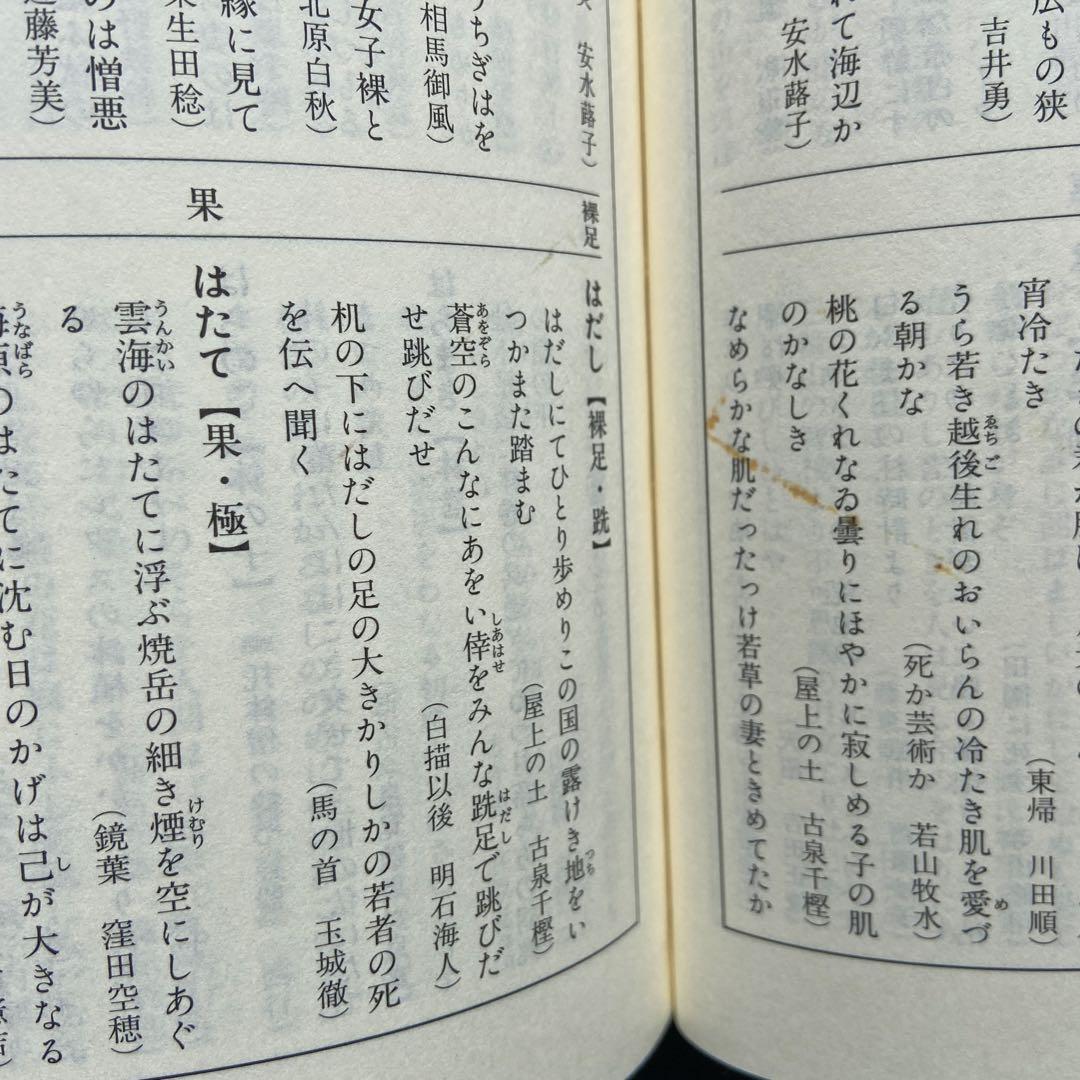 広もの狭
吉井勇）
れて海辺か
安水蕗子）
宵冷たき
（東帰　川田順）
うら若き越後生れのおいらんの冷たき肌を愛づ
ゑちご
め
る朝かな
（死か芸術か　若山牧水）
桃の花くれなゐ曇りにほやかに寂しめる子の肌
のかなしき
（屋上の土　古泉千樫）
なめらかな肌だったっけ若草の妻ときめてたか
安水蕗子）
うちぎはを
相馬御風）
女子裸と
北原白秋）
縁に見て
来生田稔）
のは憎悪
近藤芳美）
裸足
果
はだし【裸足・跣】
はだしにてひとり歩めりこの国の露けき地をい
つち
つかまた踏まむ
（屋上の土　古泉千樫）
蒼空のこんなにあをい倖をみんな跣足で跳びだ
あをぞら
しあはせ
はだし
せ跳びだせ
（白描以後　明石海人）
机の下にはだしの足の大きかりしかの若者の死
を伝へ聞く
（馬の首　玉城徹）
はたて【果・極】
雲海のはたてに浮ぶ焼岳の細き煙を空にしあぐ
うんかい
けむり
る
（鏡葉　窪田空穂）
海原のはたてに沈む日のかげは己が大きなる
うなばら
し